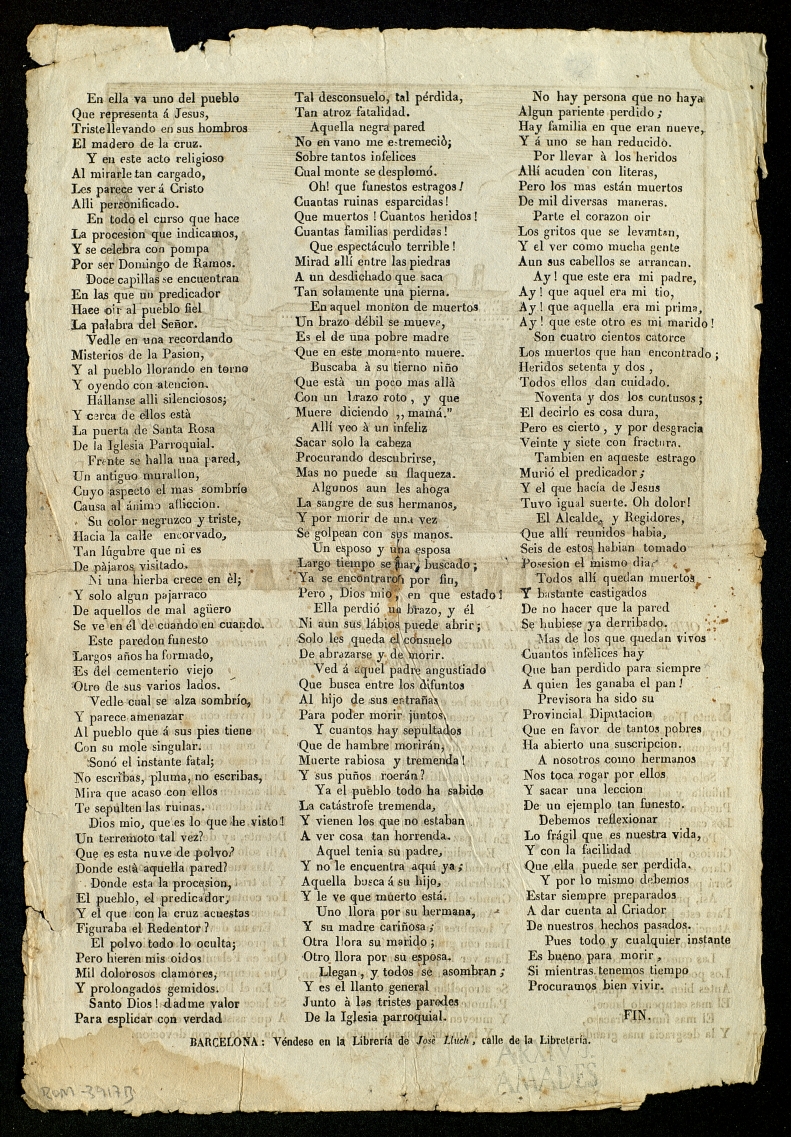 En ella va uno del pueblo
Que representa á Jesus,
Triste llevando en sus hombros
El madero de la cruz.
Y en este acto religioso
Al mirarle tan cargado,
Les parece ver á Cristo
Alli personificado.
En todo el curso que hace
La procesion que indicamos,
Y se celebra con pompa
Por ser Domingo de Ramos.
Doce capillas se encuentran
En las que un predicador
Hace oir al pueblo fiel
La palabra del Señor.
Vedle en una recordando
Misterios de la Pasion,
Y al pueblo llorando en torno
Y oyendo con atencion.
Hállanse alli silenciosos;
Y cerca de ellos está
La puerta de Santa Rosa
De la Iglesia Parroquial.
Frente se halla una pared,
Un antiguo murallon,
Cuyo aspecto el mas sombrío
Causa al ánimo afliccion.
Su color negruzco y triste,
Hacia la calle encorvado,
Tan lúgubre que ni es
De pájaros visitado.
Ni una hierba crece en èl;
Y solo algun pajarraco
De aquellos de mal agüero
Se ve en él de cuando en cuando.
Este paredon funesto
Largos años ha formado,
Es del cementerio viejo
Otro de sus varios lados.
Vedle cual se alza sombrío,
Y parece amenazar
Al pueblo que á sus pies tiene
Con su mole singular.
Sonó el instante fatal;
No escribas, pluma, no escribas,
Mira que acaso con ellos
Te sepulten las ruinas.
Dios mio, que es lo que he visto!
Un terremoto tal vez?
Que es esta nuve de polvo?
Donde està aquella pared?
Donde esta la procesion,
El pueblo, el predicador,
Y el que con la cruz acuestas
Figuraba el Redentor?
El polvo todo lo oculta;
Pero hieren mis oidos
Mil dolorosos clamores,
Y prolongados gemidos.
Santo Dios! dadme valor
Para esplicar con verdad
Tal desconsuelo, tal pérdida,
Tan atroz fatalidad.
Aquella negra pared
No en vano me estremeciò;
Sobre tantos infelices
Cual monte se desplomó.
Oh! que funestos estragos!
Cuantas ruinas esparcidas!
Que muertos! Cuantos heridos!
Cuantas familias perdidas!
Que espectáculo terrible!
Mirad allí entre las piedras
A un desdichado que saca
Tan solamente una pierna.
En aquel monton de muertos
Un brazo débil se mueve,
Es el de una pobre madre
Que en este momento muere.
Buscaba á su tierno niño
Que està un poco mas allà
Con un brazo roto, y que
Muere diciendo ,,mamá."
Allí veo à un infeliz
Sacar solo la cabeza
Procurando descubrirse,
Mas no puede su flaqueza.
Algunos aun les ahoga
La sangre de sus hermanos,
Y por morir de una vez
Se golpean con sus manos.
Un esposo y una esposa
Largo tiempo se han buscado;
Ya se encontraron por fin,
Pero, Dios mio, en que estado!
Ella perdió un brazo, y él
Ni aun sus lábios puede abrir;
Solo les queda el consuelo
De abrazarse y de morir.
Ved á aquel padre angustiado
Que busca entre los difuntos
Al hijo de sus entrañas
Para poder morir juntos,
Y cuantos hay sepultados
Que de hambre morirán,
Muerte rabiosa y tremenda!
Y sus puños roerán?
Ya el pueblo todo ha sabido
La catástrofe tremenda,
Y vienen los que no estaban
A ver cosa tan horrenda.
Aquel tenia su padre,
Y no le encuentra aquí ya;
Aquella busca á su hijo,
Y le ve que muerto está.
Uno llora por su hermana,
Y su madre cariñosa;
Otra llora su marido;
Otro llora por su esposa.
Llegan, y todos se asombran;
Y es el llanto general
Junto à las tristes paredes
De la Iglesia parroquial.
No hay persona que no haya
Algun pariente perdido;
Hay familia en que eran nueve,
Y á uno se han reducido.
Por llevar à los heridos
Allí acuden con literas,
Pero los mas están muertos
De mil diversas maneras.
Parte el corazon oir
Los gritos que se levantan,
Y el ver como mucha gente
Aun sus cabellos se arrancan.
Ay! que este era mi padre,
Ay! que aquel era mi tio,
Ay! que aquella era mi prima,
Ay! que este otro es mi marido!
Son cuatro cientos catorce
Los muertos que han encontrado;
Heridos setenta y dos,
Todos ellos dan cuidado.
Noventa y dos los contusos;
El decirlo es cosa dura,
Pero es cierto, y por desgracia
Veinte y siete con fractura.
Tambien en aqueste estrago
Murió el predicador;
Y el que hacía de Jesus
Tuvo igual suerte. Oh dolor!
El Alcalde, y Regidores,
Que allí reunidos habia,
Seis de estos habian tomado
Posesion el mismo dia.
Todos allí quedan muertos
Y bastante castigados
De no hacer que la pared
Se hubiese ya derribado.
Mas de los que quedan vivos
Cuantos infelices hay
Que han perdido para siempre
A quien les ganaba el pan!
Previsora ha sido su
Provincial Diputacion
Que en favor de tantos pobres
Ha abierto una suscripcion.
A nosotros como hermanos
Nos toca rogar por ellos
Y sacar una leccion
De un ejemplo tan funesto.
Debemos reflexionar
Lo frágil que es nuestra vida,
Y con la facilidad
Que ella puede ser perdida.
Y por lo mismo debemos
Estar siempre preparados
A dar cuenta al Criador
De nuestros hechos pasados.
Pues todo y cualquier instante
Es bueno para morir,
Si mientras tenemos tiempo
Procuramos bien vivir.
FIN.
BARCELONA: Véndese en la Librería de José Lluch, calle de la Libretería.
ARXIU J.
AMADES